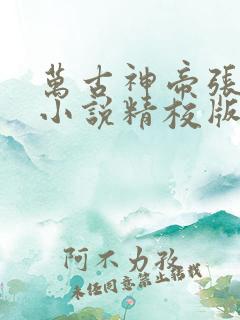 萬古神帝張
小說精校版
阿不力孜
未經同意禁止搭載